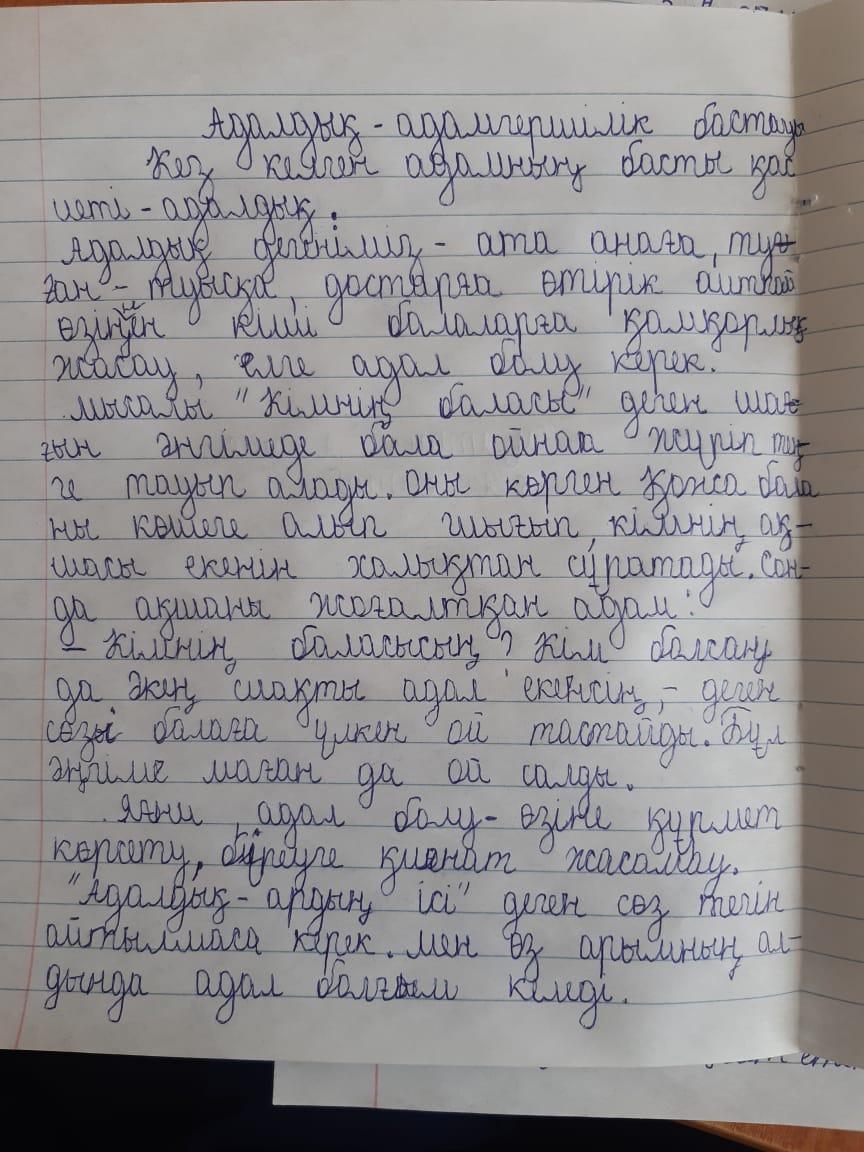 Адалдық - адамгершілік бастауы
Кез келген адамның басты қас
иеті - адалдық.
Адалдық дегеніміз - ата анаға, туы
ған - туысқа, достарға өтірік айтпай
өзіңнен кіші балаларға қамқорлық
жасау, елге адал болу керек.
мысалы "Кімнің баласы" деген шағ
ғын әңгімеде бала ойнап жүріп тең-
ге тауып алады. Оны көрген Қожа бала
ны көшеге алып шығып, кімнің ақ-
шасы екенін халықтан сұратады. Сон-
да ақшаны жоғалтқан адам:
- Кімнің баласысың? Кім болсаң
да әкең сияқты адал екенсің, - деген
сөзі балаға үлкен ой тастайды. Бұл
әңгіме маған да ой салды.
Яғни, адал болу - өзіңе құрмет
көрсету, біреуге қиянат жасамау.
"Адалдық - ардың ісі" деген сөз тегін
айтылмаса керек. мен өз арымның ал-
дында адал болғым келеді.